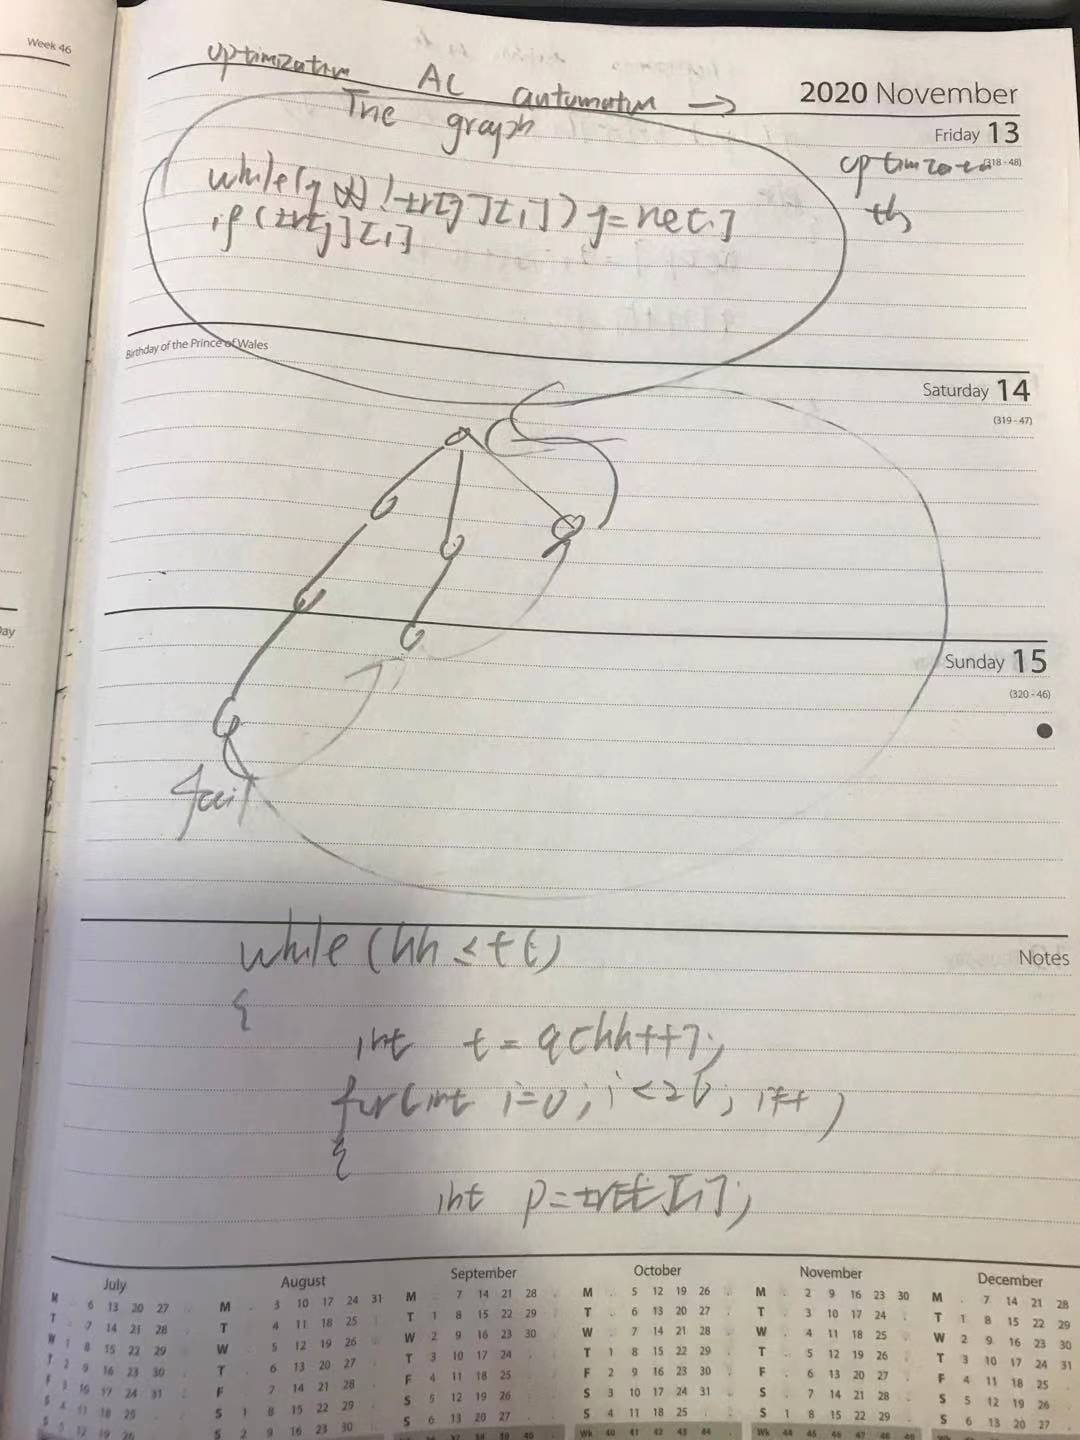 Week 46
optimization AC automaton →
2020 November
The graph
Friday 13
(318 - 48)
optimized
while(j && !tr[j][i]) j=ne[j]
if(tr[j][i]
Birthday of the Prince of Wales
Saturday 14
(319 - 47)
Sunday 15
(320 - 46)
fail
Notes
while (hh ≤ tt)
{
int t = q[hh++];
for(int i=0; i<26; i++)
{
int p=tr[t][i];
July August September October November December
M 6 13 20 27
T 7 14 21 28
W 1 8 15 22 29
T 2 9 16 23 30
F 3 10 17 24 31
S 4 11 18 25
S 5 12 19 26
M 3 10 17 24 31
T 4 11 18 25
W 5 12 19 26
T 6 13 20 27
F 7 14 21 28
S 1 8 15 22 29
S 2 9 16 23 30
M 7 14 21 28
T 1 8 15 22 29
W 2 9 16 23 30
T 3 10 17 24
F 4 11 18 25
S 5 12 19 26
S 6 13 20 27
M 5 12 19 26
T 6 13 20 27
W 7 14 21 28
T 1 8 15 22 29
F 2 9 16 23 30
S 3 10 17 24 31
S 4 11 18 25
Wk 40 41 42 43 44
M 2 9 16 23 30
T 3 10 17 24
W 4 11 18 25
T 5 12 19 26
F 6 13 20 27
S 7 14 21 28
S 1 8 15 22 29
Wk 44 45 46 47 48 49
M 7 14 21 28
T 1 8 15 22 29
W 2 9 16 23 30
T 3 10 17 24 31
F 4 11 18 25
S 5 12 19 26
S 6 13 20 27